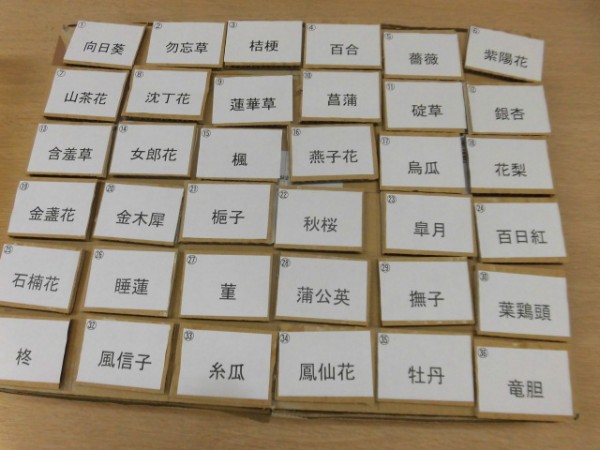 ① 向日葵
② 勿忘草
③ 桔梗
④ 百合
⑤ 薔薇
⑥ 紫陽花
⑦ 山茶花
⑧ 沈丁花
⑨ 蓮華草
⑩ 菖蒲
⑪ 碇草
⑫ 銀杏
⑬ 含羞草
⑭ 女郎花
⑮ 楓
⑯ 燕子花
⑰ 烏瓜
⑱ 花梨
⑲ 金盞花
⑳ 金木犀
㉑ 梔子
㉒ 秋桜
㉓ 皐月
㉔ 百日紅
㉕ 石楠花
㉖ 睡蓮
㉗ 菫
㉘ 蒲公英
㉙ 撫子
㉚ 葉鶏頭
柊
㉜ 風信子
㉝ 糸瓜
㉞ 鳳仙花
㉟ 牡丹
㊱ 竜胆